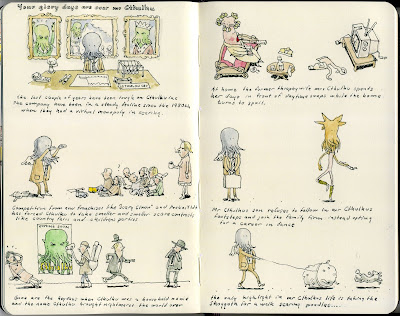 Your glory days are over mr Cthulhu
The last couple of years have been tough on Cthulhu inc
the company have been in a steady decline since the 1980's,
when they had a virtual monopoly in scaring.
Competition from new franchises like "Scary Clown" and
has forced Cthulhu to take smaller and smaller scare contracts
like country fairs and childrens parties
Gone are the heydays when Cthulhu was a household name
and the name Cthulhu brought nightmares the world over
At home the former trophy wife mrs Cthulhu spends
her days in front of daytime soaps while the home
turns to spoil.
Mr Cthulhus son refuses to follow in mr Cthulhus
footsteps and join the family firm. instead opting
for a career in dance
the only highlight in mr Cthulhus life is taking the
Shoggoth for a walk scaring poodles...